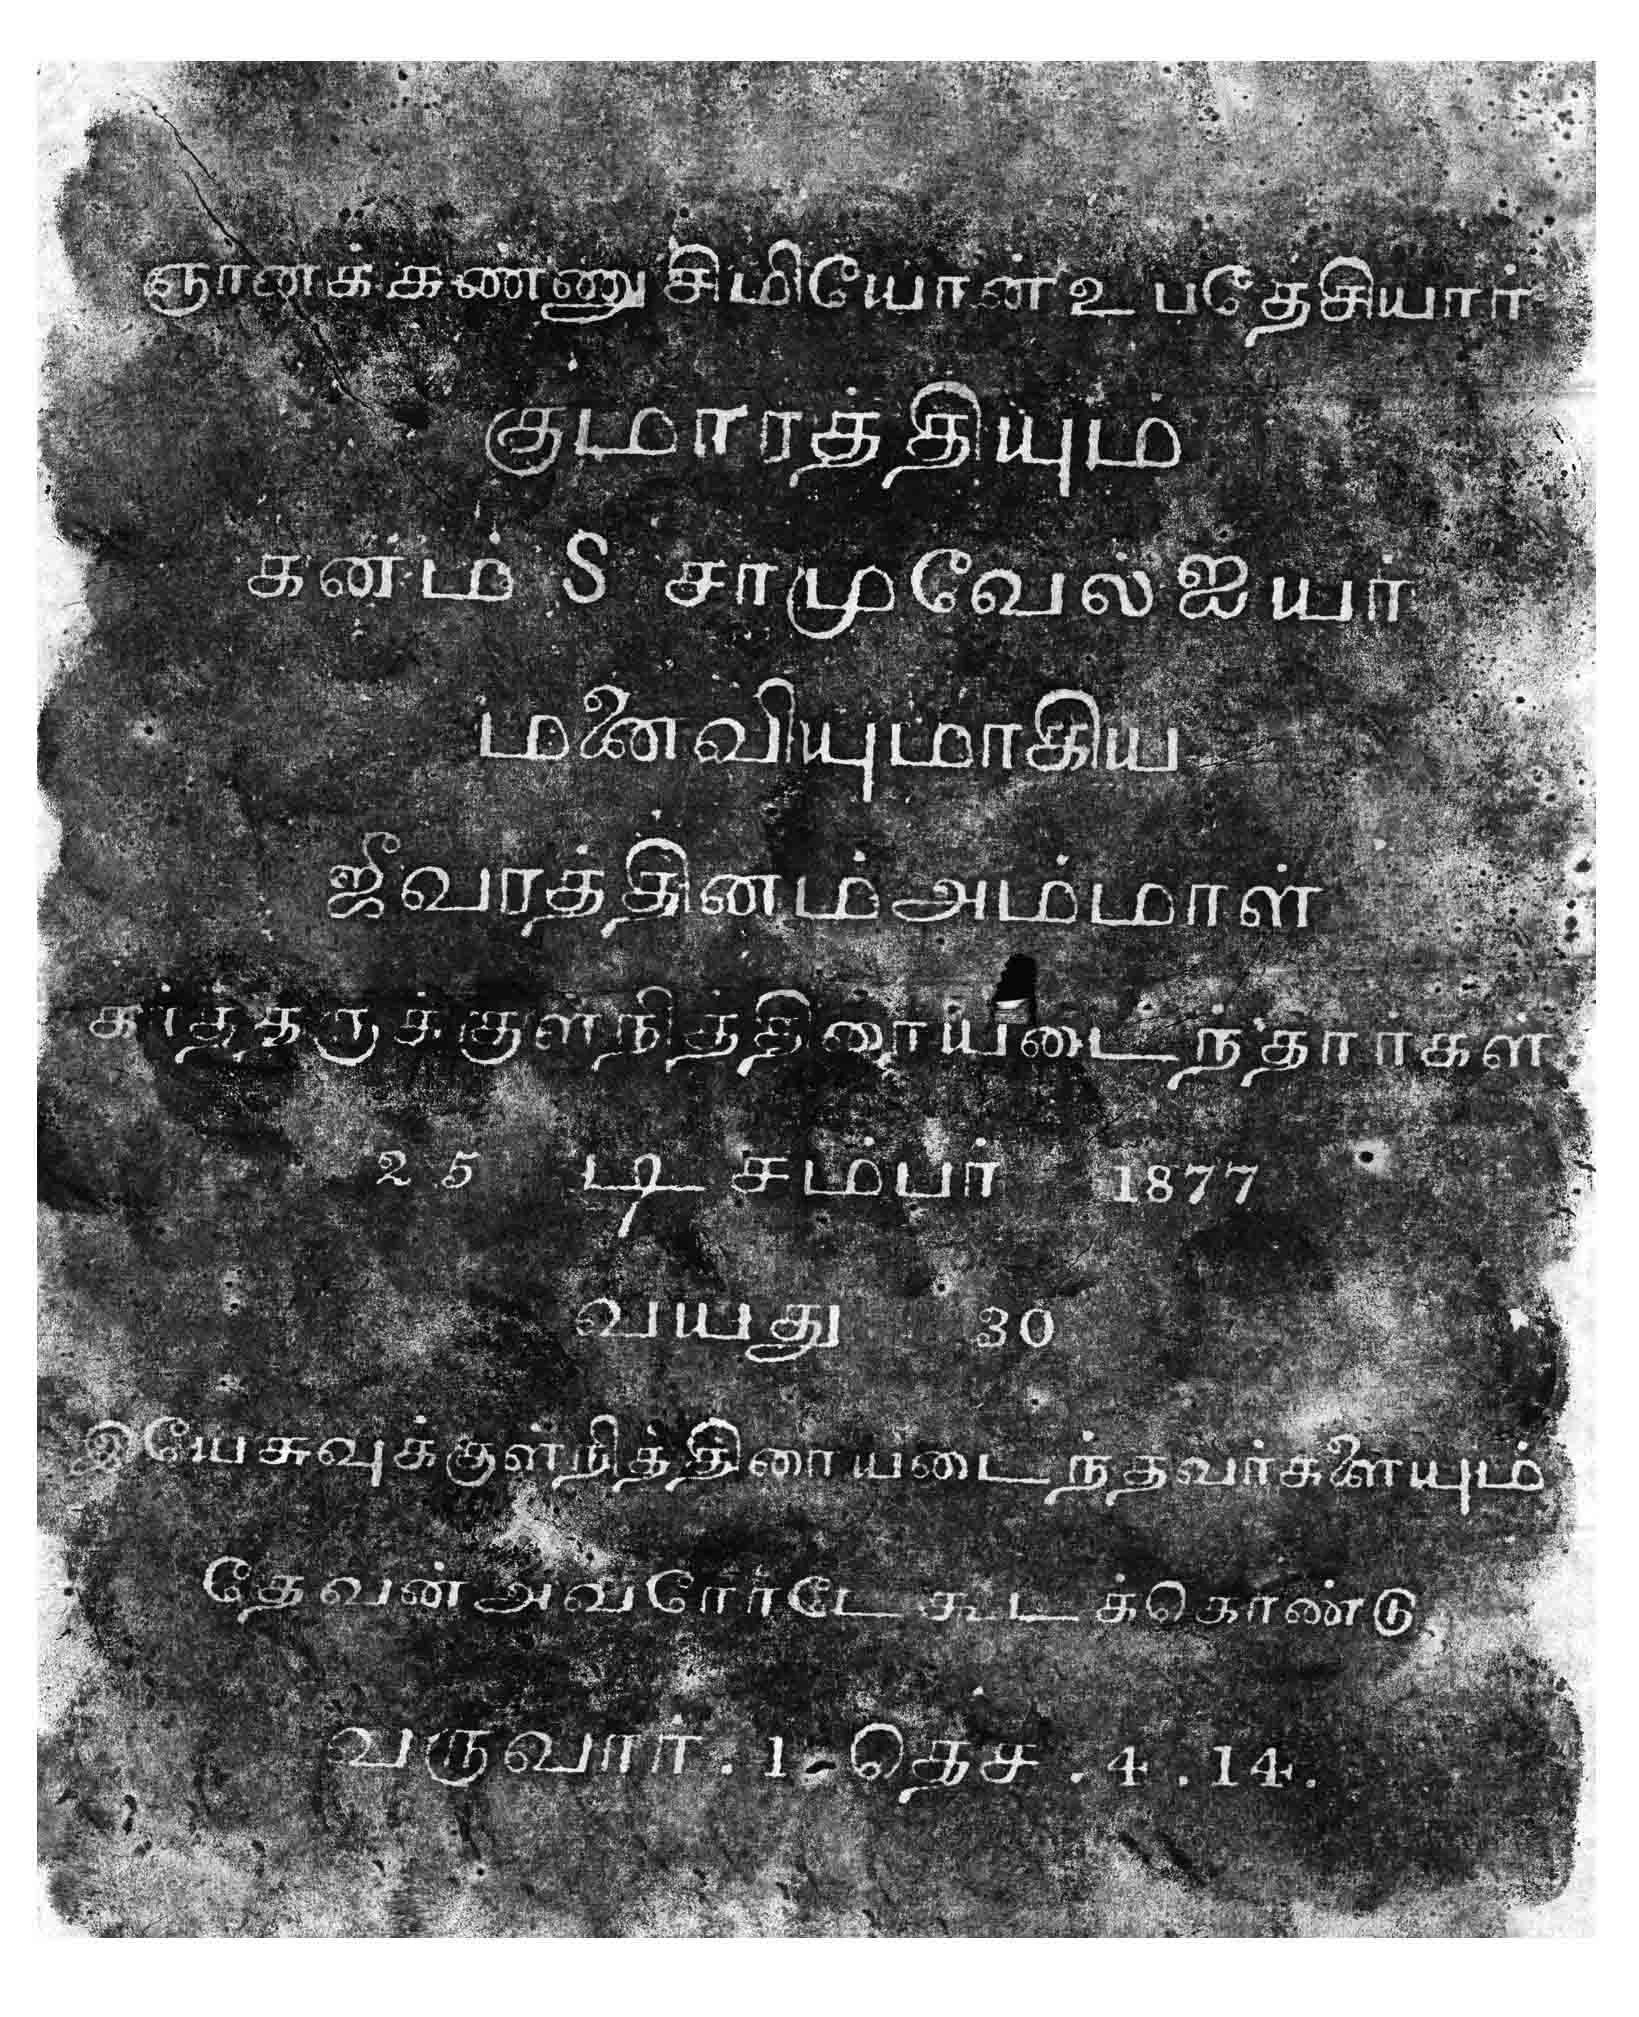 ஞானக்கண்ணு சிமியோன் உபதேசியார்
குமாரத்தியும்
கனம் S சாமுவேல் ஐயர்
மனைவியுமாகிய
ஜீவரத்தினம் அம்மாள்
கர்த்தருக்குள் நித்திரையடைந்தார்கள்
25 டிசம்பர் 1877
வயது 30
இயேசுவுக்குள் நித்திரையடைந்தவர்களையும்
தேவன் அவரோர்டே கூடக்கொண்டு
வருவார். 1. தெச. 4. 14.